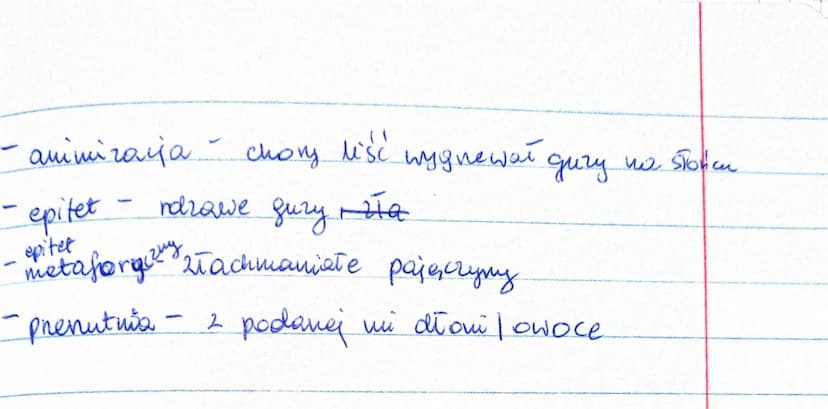 - animizacja - chory liść wygrzewał guzy na słońcu
- epitet - rdzawe guzy, zła
- epitet
metaforyczny złachmaniałe pajęczyny
- przerzutnia - z podanej mi dłoni / owoce